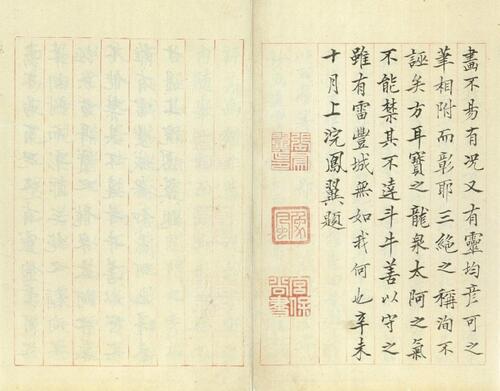 畫不易有况又有靈均彦可之
華相附而彰耶三絶之稱洵不
誣矣方耳寳之龍泉太阿之氣
不能禁其不達斗牛善以守之
雖有雷豐城無如我何也辛未
十月上浣鳳翼題